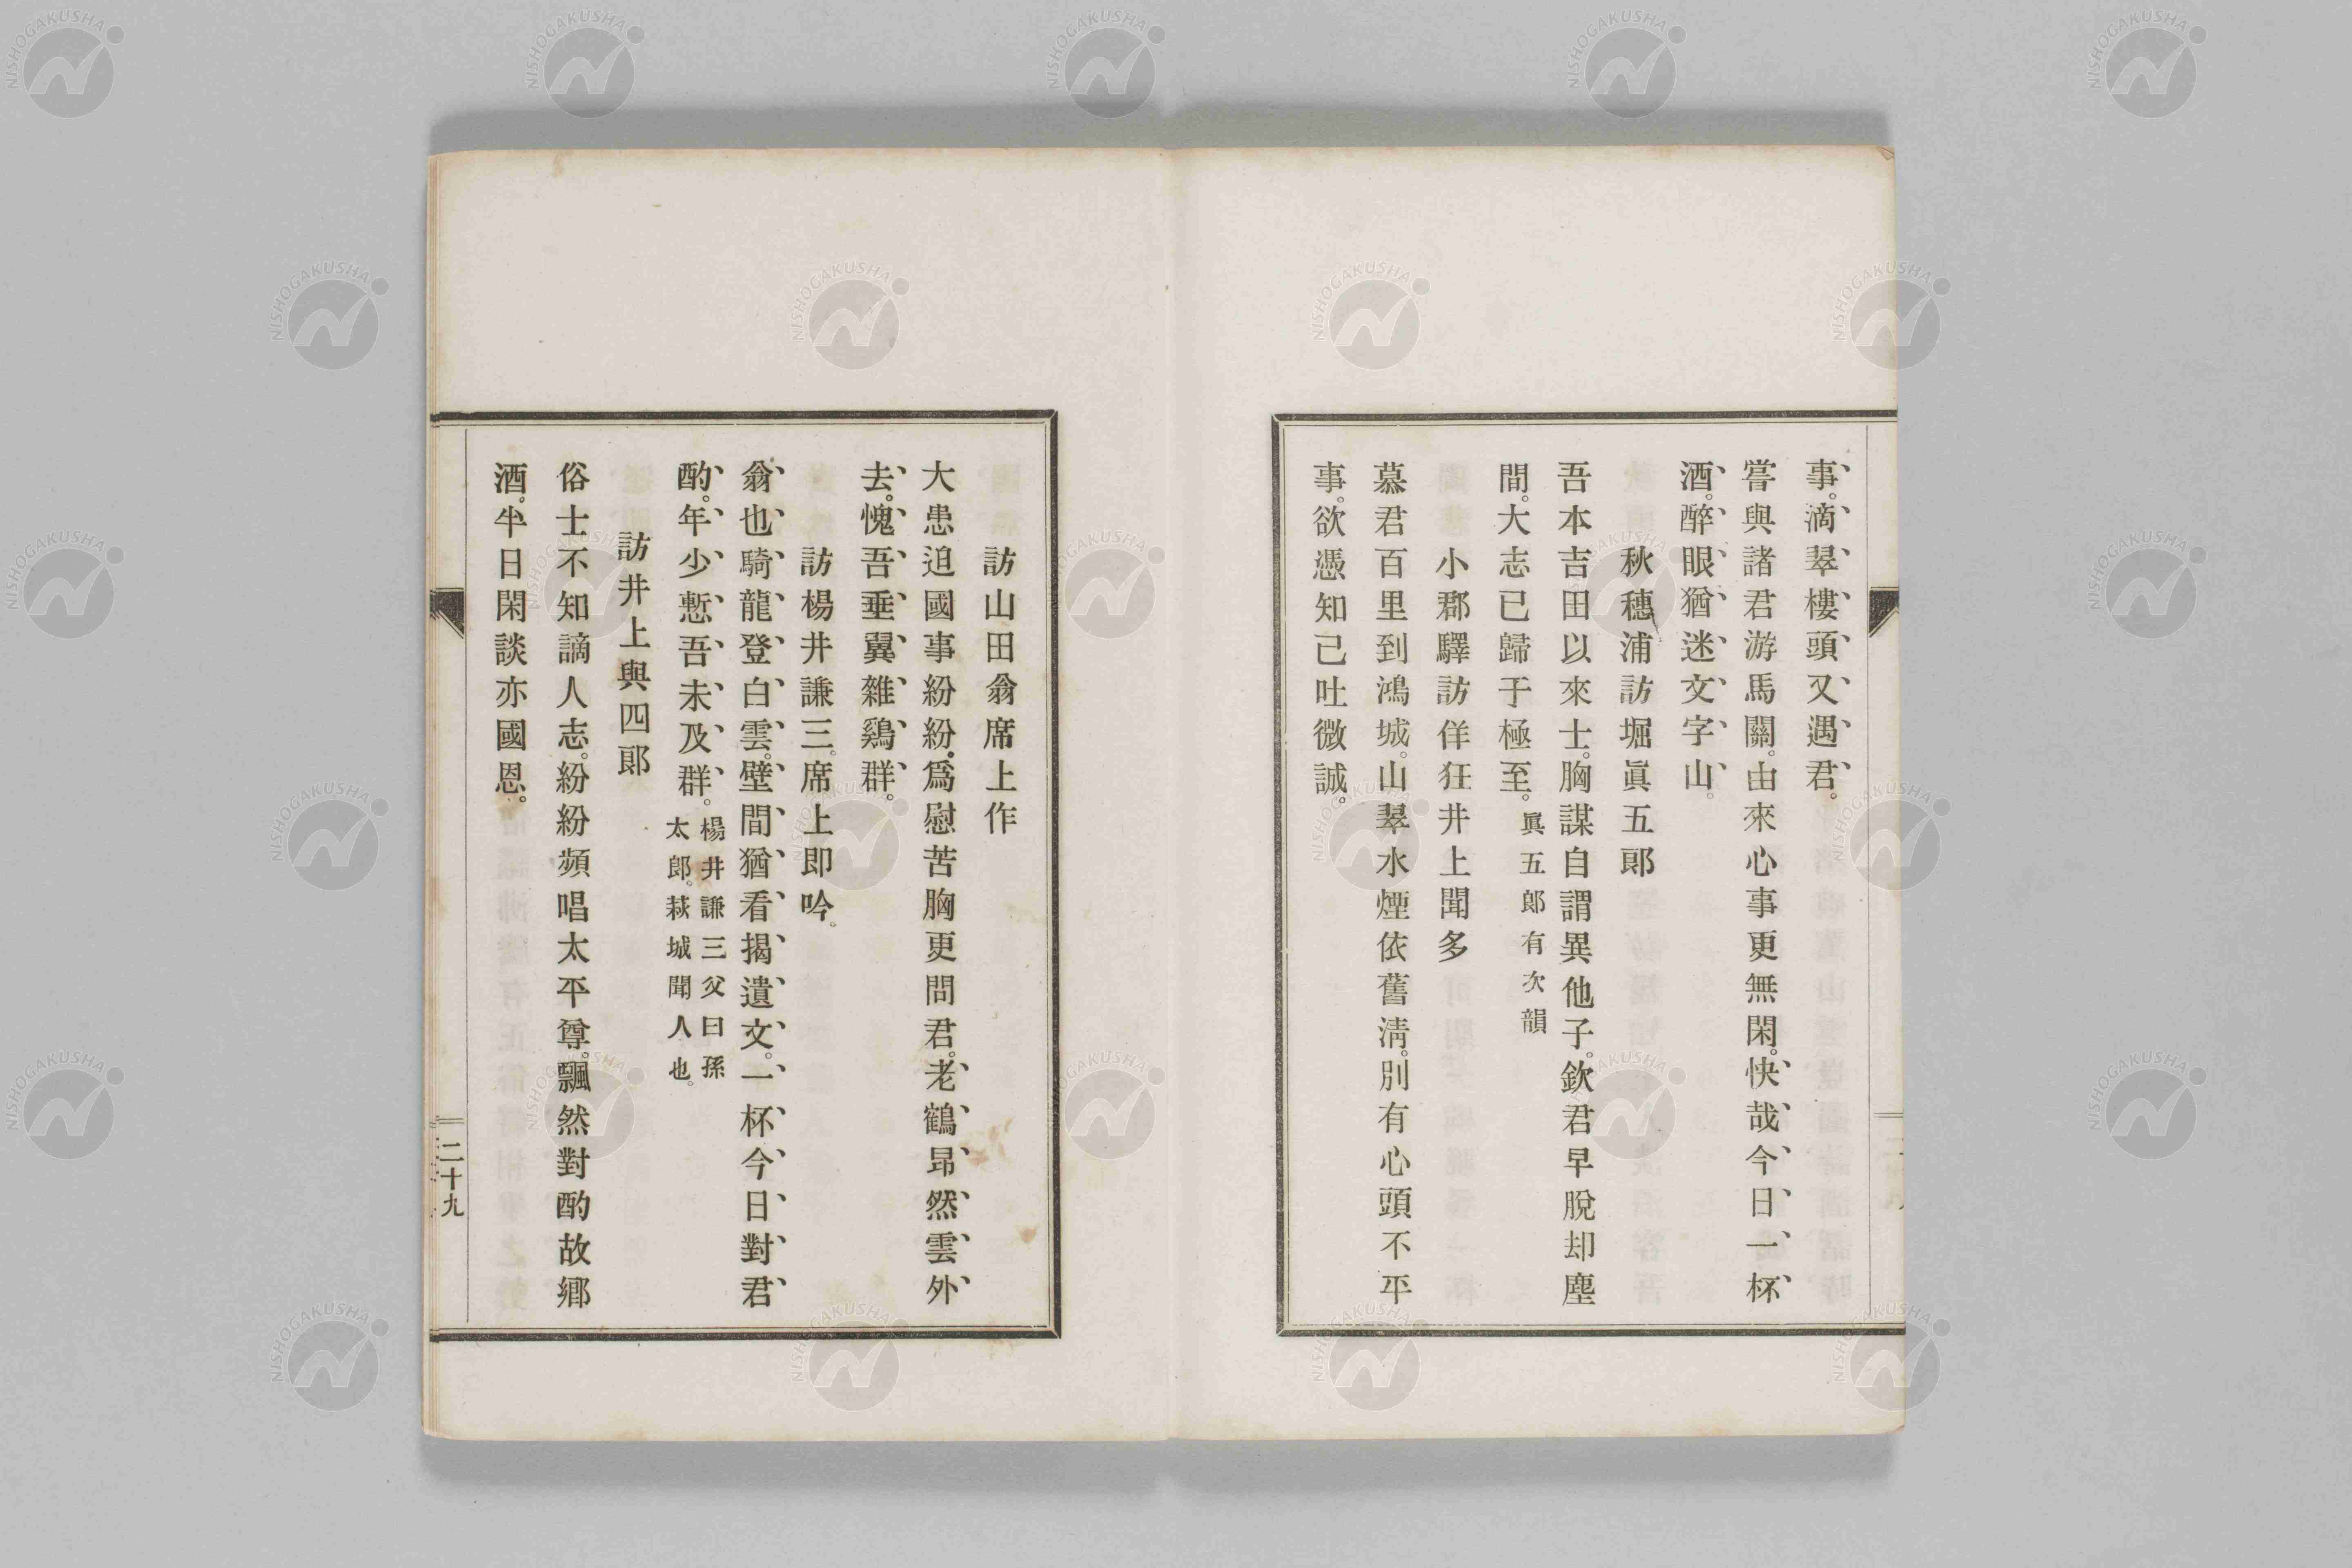 事。滴翠樓頭又遇君。
嘗與諸君游馬關。由來心事更無閑。快哉今日一杯
酒。醉眼猶迷文字山。
秋穗浦訪堀眞五郎
吾本吉田以來士。胸謀自謂異他子。欽君早脫却塵
間。大志已歸于極至。眞五郎有次韻
小郡驛訪佯狂井上聞多
慕君百里到鴻城。山翠水煙依舊淸。別有心頭不平
事。欲憑知己吐微誠。
訪山田翁席上作
大患迫國事紛紛。爲慰苦胸更問君。老鶴昻然雲外
去。愧吾垂翼雜鷄群。
訪楊井謙三。席上即吟。
翁也騎龍登白雲。壁間猶看揭遺文。一杯今日對君
酌。年少慙吾未及群。楊井謙三父曰孫
太郎。萩城聞人也。
訪井上與四郎
俗士不知謫人志。紛紛頻唱太平尊。飄然對酌故鄕
酒。半日閑談亦國恩。
二十九
NISHOGAKUSHA